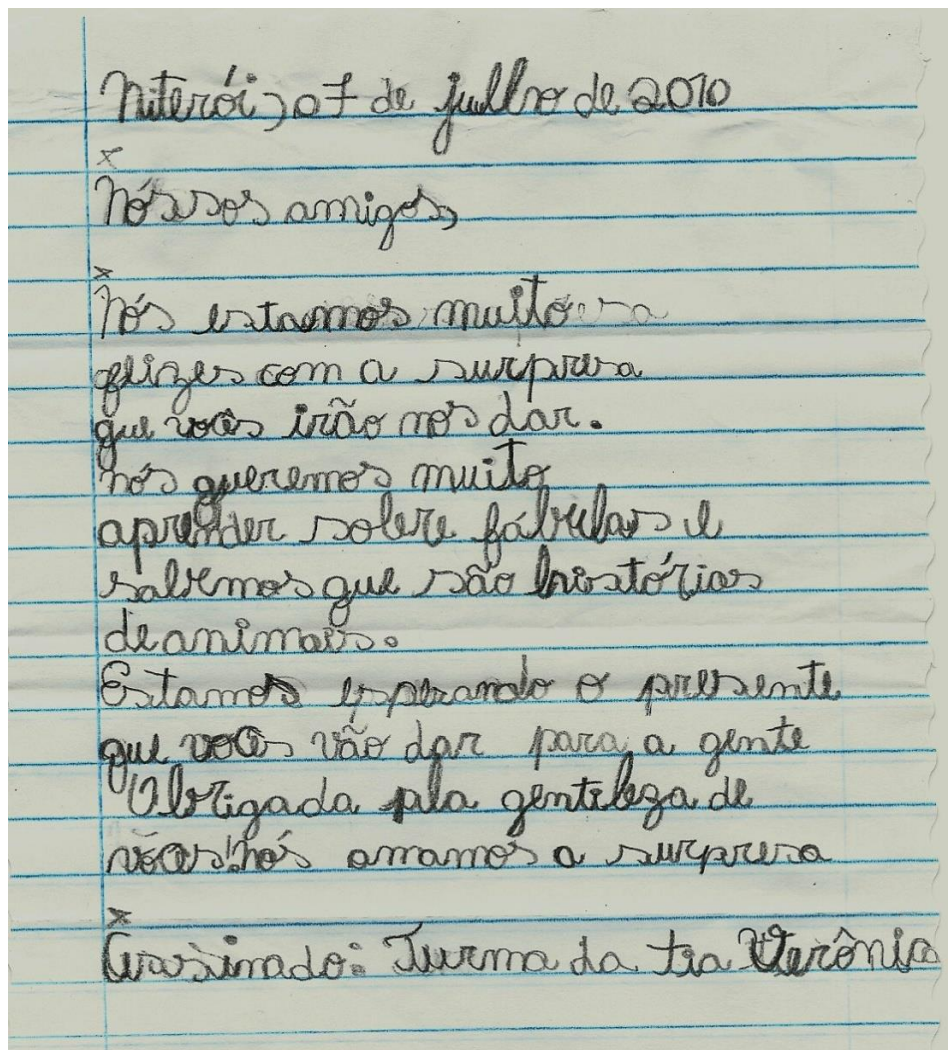 Niterói, 07 de julho de 2010
x
Nóssos amigos,
x
Nós estamos muito
felizes com a surpresa
que vocês irão nos dar.
nós queremos muito
aprender sobre fábulas e
sabemos que são histórias
de animais.
Estamos esperando o presente
que voces vão dar para a gente
Obrigada pela gentileza de
vôces! nós amamos a surpresa
x
Assinado: Turma da tia Verônica